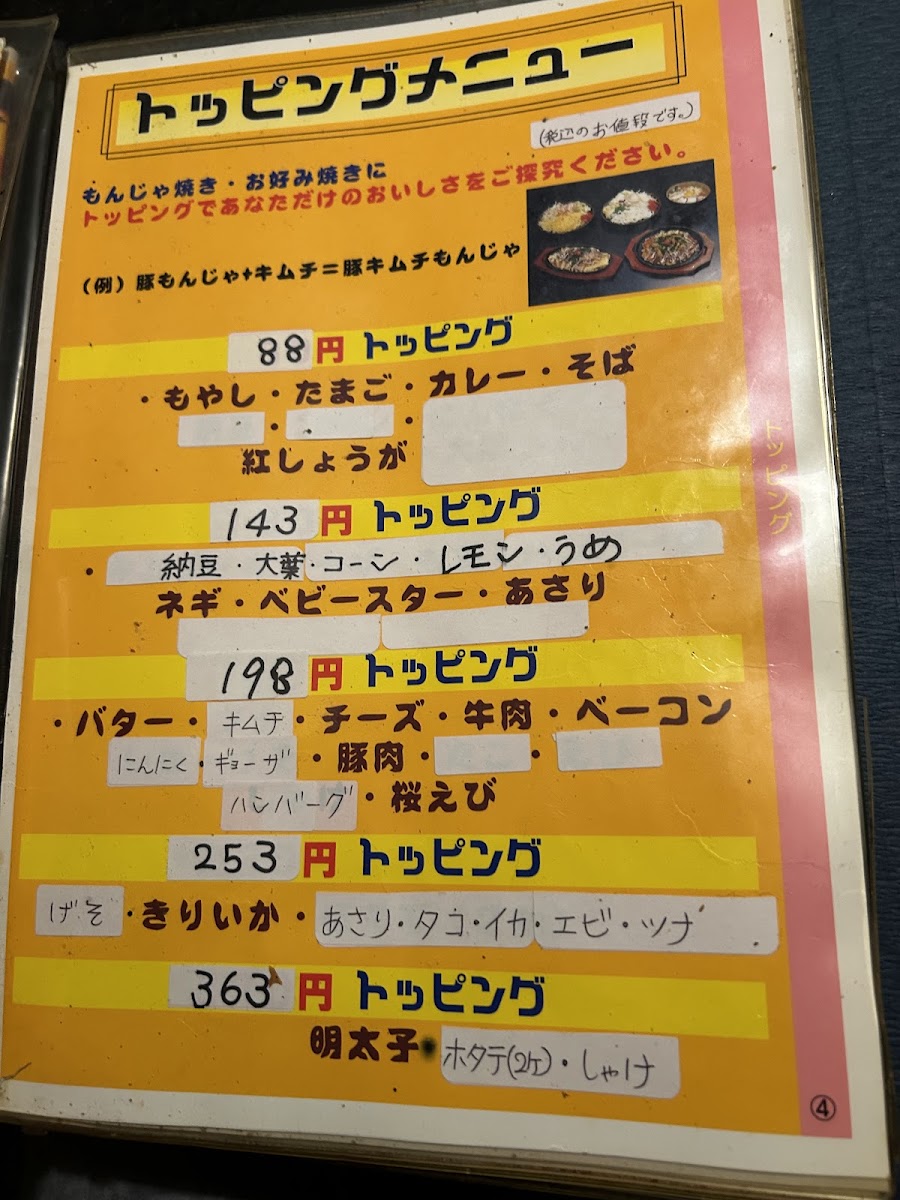 トッピングメニュー
(税込のお値段です。)
もんじゃ焼き・お好み焼きに
トッピングであなただけのおいしさをご探究ください。
(例)豚もんじゃ+キムチ=豚キムチもんじゃ
88円 トッピング
・もやし・たまご・カレー・そば
・ ・
紅しょうが
143円 トッピング
・納豆・大葉・コーン・レモン・うめ
ネギ・ベビースター・あさり
198円 トッピング
・バター・キムチ・チーズ・牛肉・ベーコン
にんにく・ギョーザ・豚肉・ ・
ハンバーグ・桜えび
253円 トッピング
げそ・きりいか・あさり・タコ・イカ・エビ・ツナ
363円 トッピング
明太子・ホタテ(2ケ)・しゃけ
トッピング
④